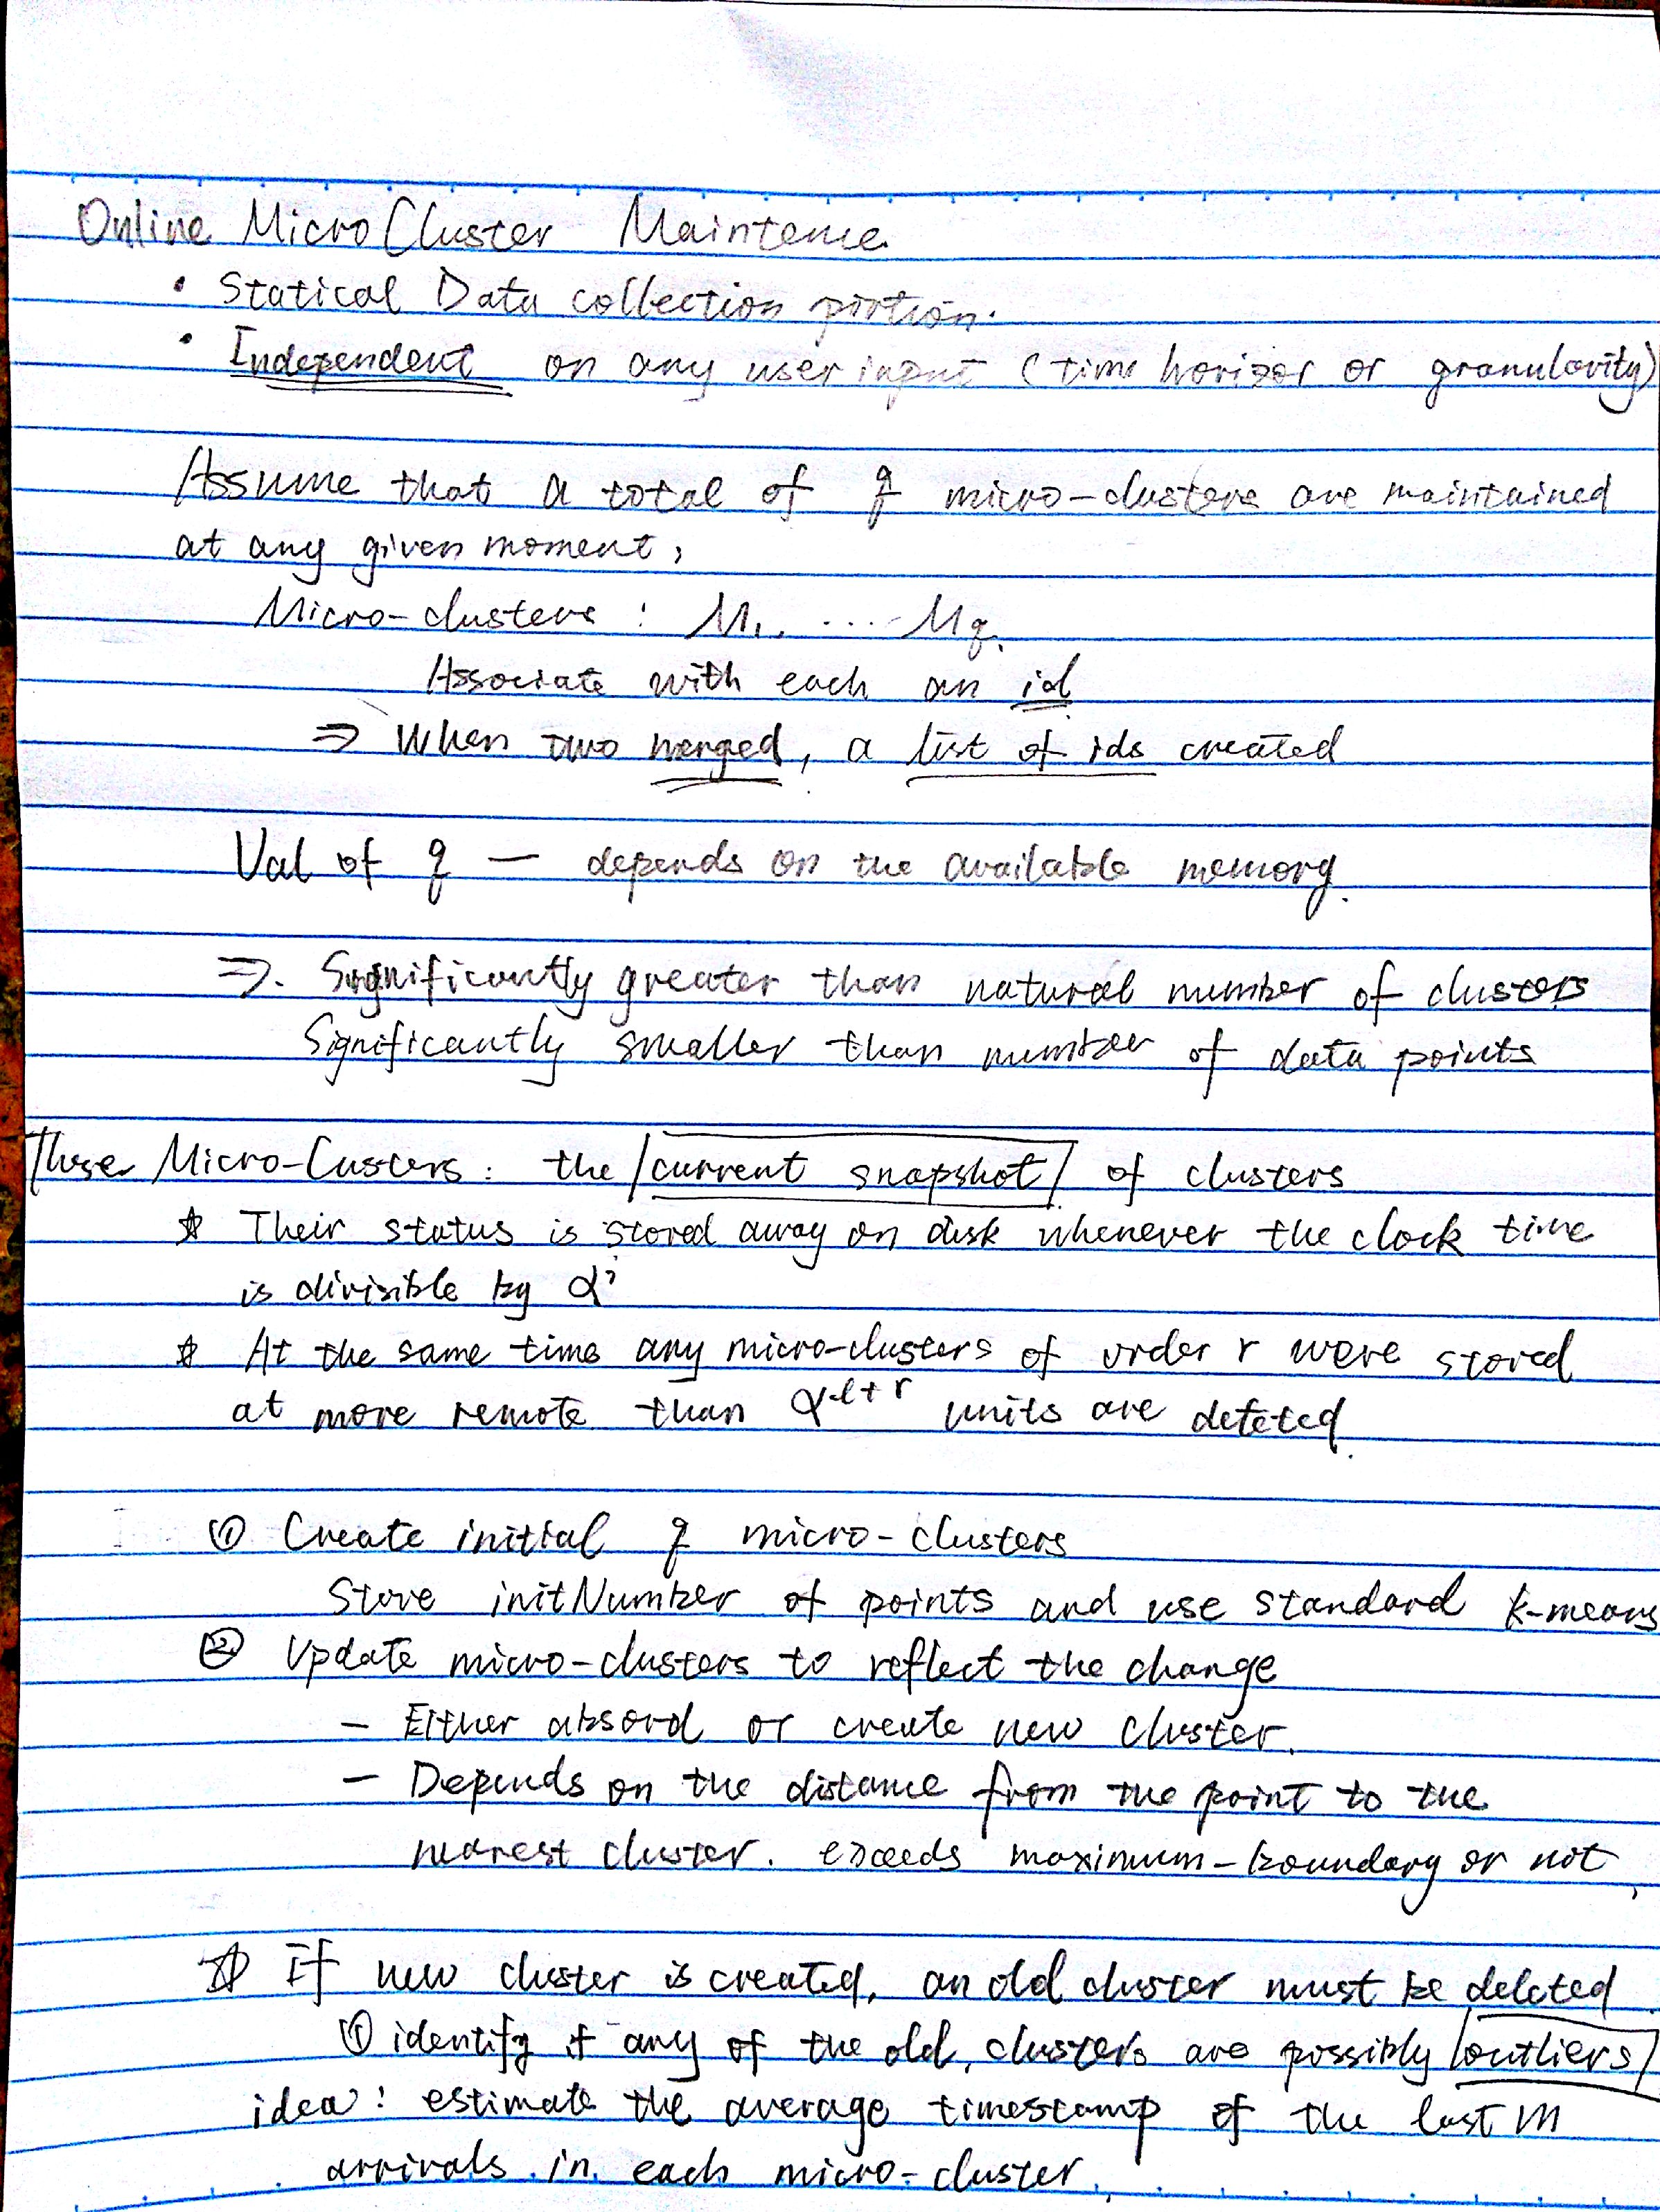 Online MicroCluster Maintence
• Statical Data collection portion.
• Independent on any user input (time horizor or granularity)
Assume that a total of q micro-clusters are maintained
at any given moment,
Micro-clusters : M₁, .... Mq.
Associate with each an id
⇒ When two merged, a list of ids created
Val of q — depends on the available memory.
⇒. Significantly greater than natural number of clusters
Significantly smaller than number of data points
These Micro-Custers: the [current snapshot] of clusters
☆ Their status is stored away on disk whenever the clock time
is divisible by αⁱ
☆ At the same time any micro-clusters of order r were stored
at more remote than α^l+r units are deteted.
① Create initial q micro-clusters
Store initNumber of points and use standard k-means
② Update micro-clusters to reflect the change
— Either absord or create new cluster.
— Depends on the distance from the point to the
nearest cluster. exceeds maximum-boundary or not,
☆ If new cluster is created, an old cluster must be deleted.
① identify if any of the old, clusters are possibly [outliers]
idea: estimate the average timestamp of the last m
arrivals in each micro-cluster,